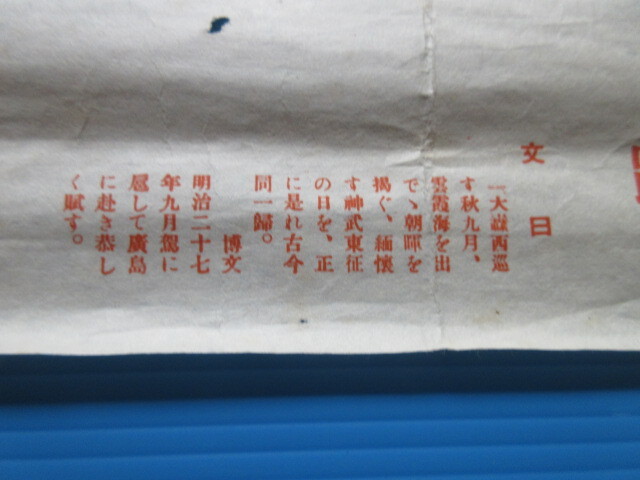 文曰
一大纛西巡
す秋九月、
雲霞海を出
でゝ朝暉を
揭ぐ、緬懷
す神武東征
の日を、正
に是れ古今
同一歸。
博文
明治二十七
年九月駕に
扈して廣島
に赴き恭し
く賦す。